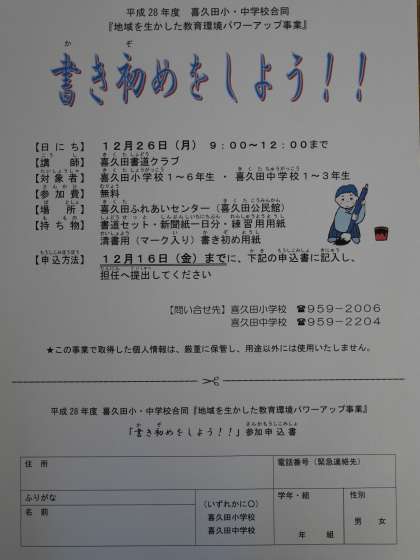 平成28年度 喜久田小・中学校合同
『地域を生かした教育環境パワーアップ事業』
書き初めをしよう！！
【日にち】 12月26日（月） 9：00～12：00まで
【講師】 喜久田書道クラブ
【対象者】 喜久田小学校1～6年生 ・ 喜久田中学校1～3年生
【参加費】 無料
【場所】 喜久田ふれあいセンター（喜久田公民館）
【持ち物】 書道セット・新聞紙一日分・練習用用紙
清書用（マーク入り）書き初め用紙
【申込方法】 12月16日（金）までに、下記の申込書に記入し、
担任へ提出してください
【問い合せ先】 喜久田小学校 ☎959－2006
喜久田中学校 ☎959－2204
★この事業で取得した個人情報は、厳重に保管し、用途以外には使用いたしません。
平成28年度 喜久田小・中学校合同『地域を生かした教育環境パワーアップ事業』
「書き初めをしよう！！」参加申込書
住所 電話番号（緊急連絡先）
ふりがな （いずれかに○） 学年・組 性別
名前 喜久田小学校
喜久田中学校 年 組 男 女